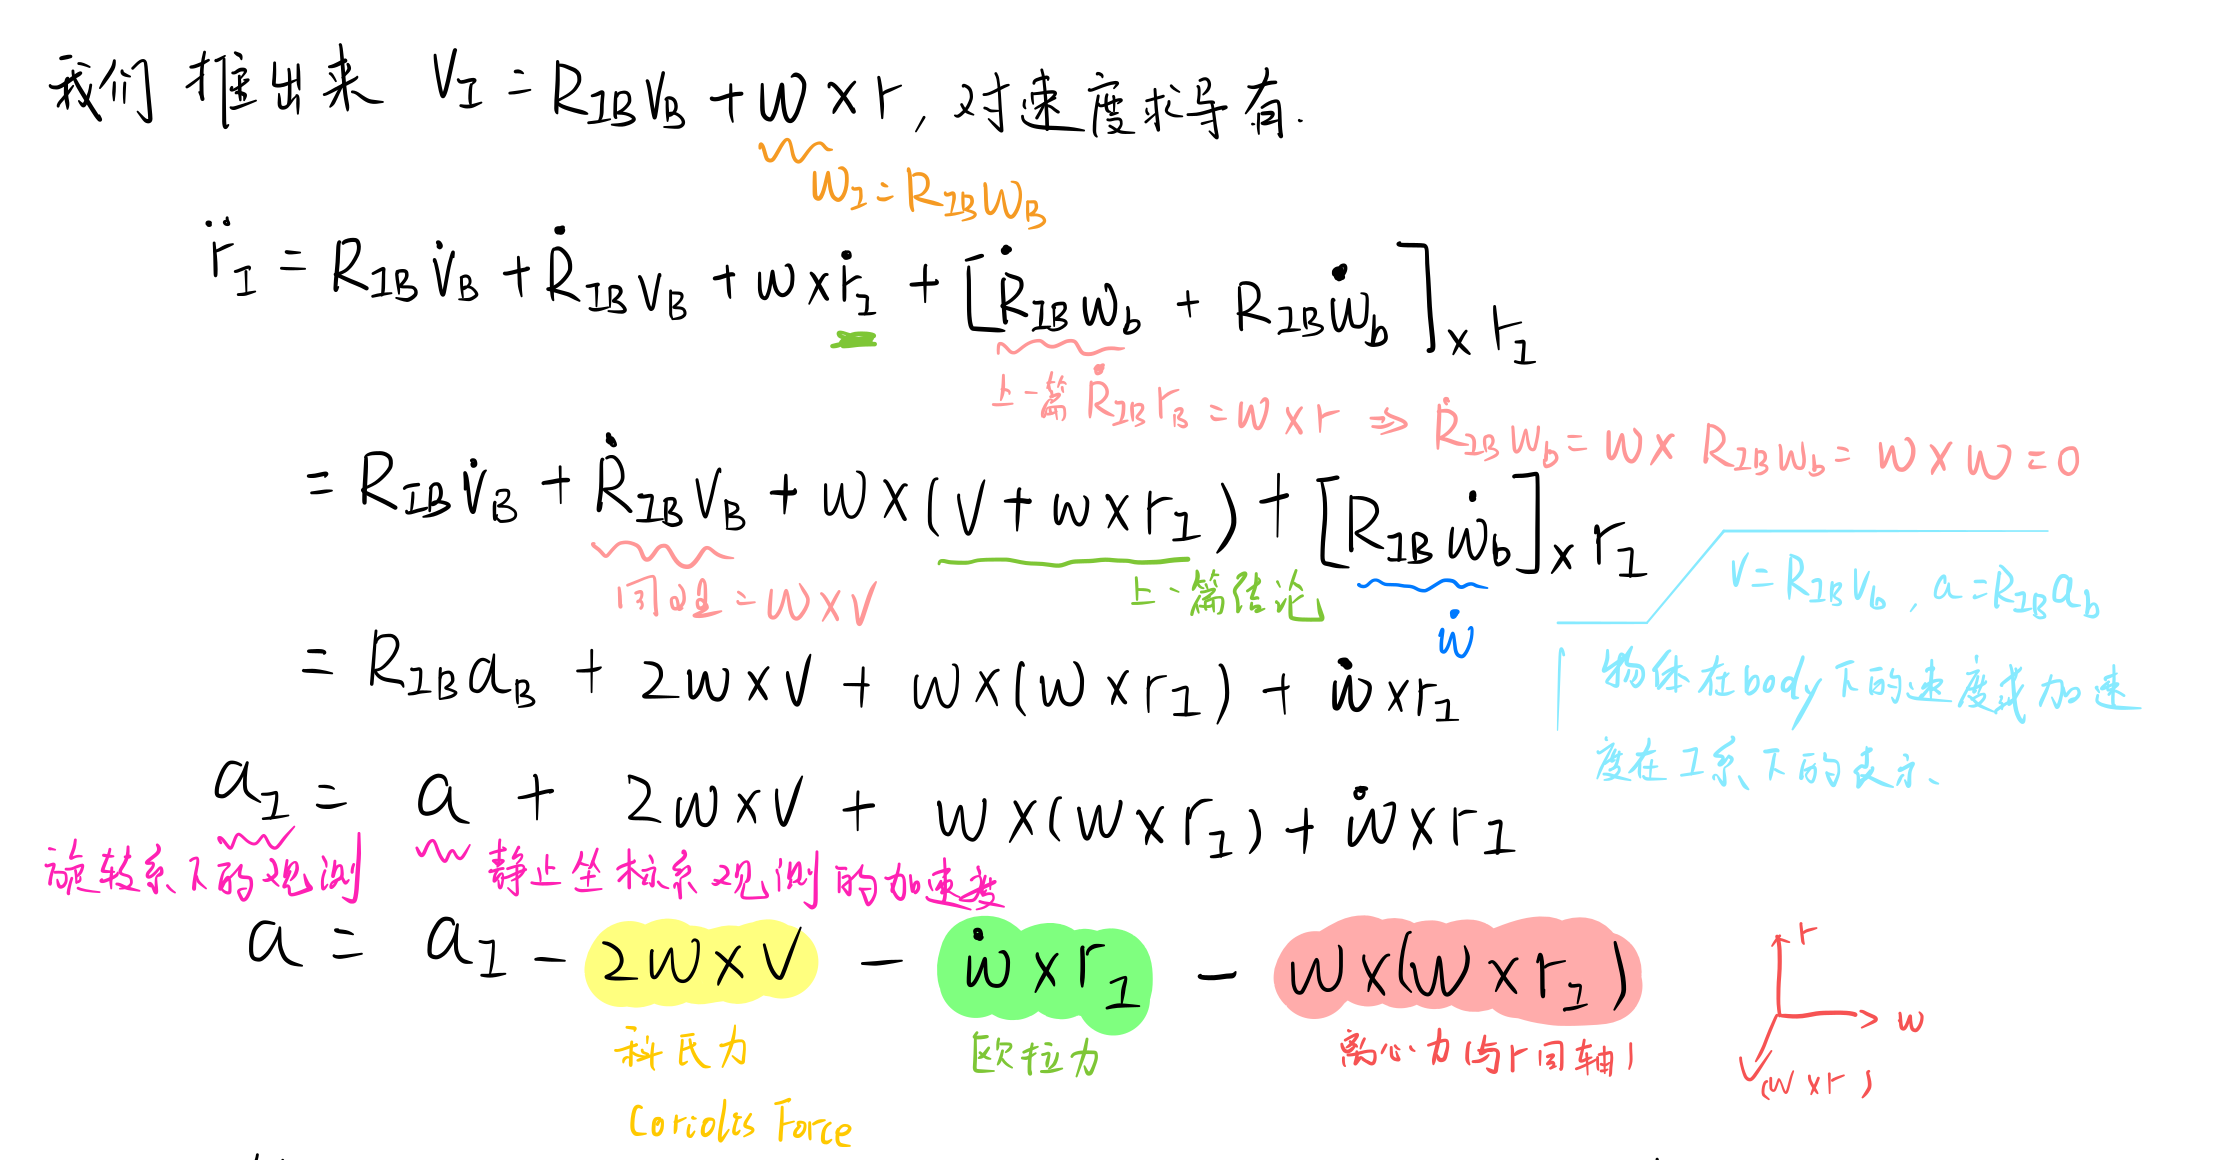 我们推出来 V_I = R_IB V_B + w × r, 对速度求导有.
w_I = R_IB w_B
r̈_I = R_IB v̇_B + Ṙ_IB v_B + w × ṙ_I + [Ṙ_IB w_b + R_IB ẇ_b]_× r_I
上一篇 Ṙ_IB r_B = w × r ⇒ Ṙ_IB w_b = w × R_IB w_b = w × w = 0
= R_IB v̇_B + Ṙ_IB v_B + w × (v + w × r_I) + [R_IB ẇ_b]_× r_I
同理 = w × v
上一篇结论
ẇ
v = R_IB v_b, a = R_IB a_b
物体在body下的速度或加速
度在I系下的表示、
= R_IB a_B + 2w × v + w × (w × r_I) + ẇ × r_I
a_I = a + 2w × v + w × (w × r_I) + ẇ × r_I
旋转系下的观测
静止坐标系观测的加速度
a = a_I - 2w × v - ẇ × r_I - w × (w × r_I)
科氏力
Coriolis Force
欧拉力
离心力(与r同轴)
r
w
(w × r)